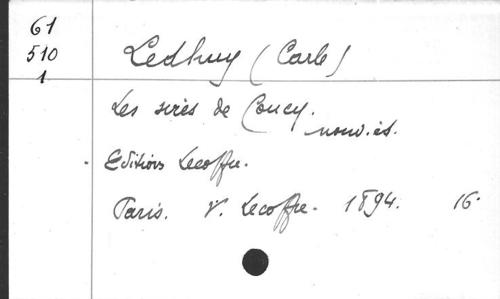 61
510
1
Ledhuy (Carle)
Les sires de Coucy.
nouv. éd.
Editions Lecoffre.
Paris. V. Lecoffre. 1894. 16.